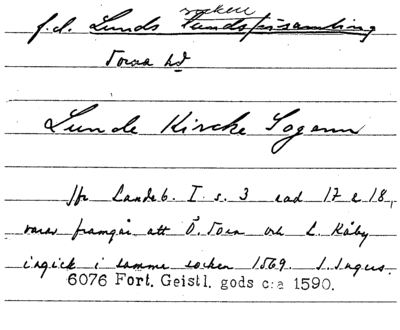 socken
f.d. Lunds Landsförsamling
Torna hd
Lunde Kircke Sogenn
Jfr Landeb. I s. 3 rad 17 o 18,
varav framgår att Ö. Torn och L. Råby
ingick i samma socken 1569. I. Ingers.
6076 Fort. Geistl. gods c:a 1590.